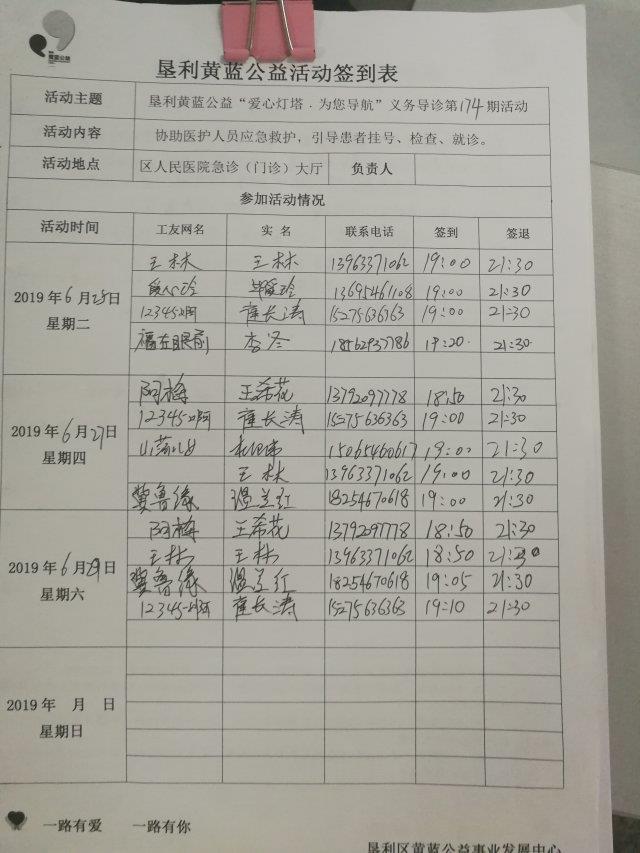 黄蓝公益
垦利黄蓝公益活动签到表
活动主题 垦利黄蓝公益“爱心灯塔．为您导航”义务导诊第174期活动
活动内容 协助医护人员应急救护，引导患者挂号、检查、就诊。
活动地点 区人民医院急诊（门诊）大厅 负责人
参加活动情况
活动时间 工友网名 实 名 联系电话 签到 签退
2019年6月25日
星期二
王林 王林 13963371062 19:00 21:30
13695461108 19:00 21:30
12345-2啊 崔长涛 15275636363 19:00 21:30
福在眼前 李冬 18562937786 19:20 21:30
2019年6月27日
星期四
阿梅 王希花 13792097778 18:50 21:30
12345-2啊 崔长涛 15275636363 19:00 21:30
15065460617 19:00 21:30
王林 13963371062 19:00 21:30
冀鲁缘 温兰红 18254670618 19:00 21:30
2019年6月29日
星期六
阿梅 王希花 13792097778 18:50 21:30
王林 王林 13963371062 18:50 21:30
冀鲁缘 温兰红 18254670618 19:05 21:30
12345-2啊 崔长涛 15275636363 19:10 21:30
2019年 月 日
星期日
一路有爱 一路有你
垦利区黄蓝公益事业发展中心